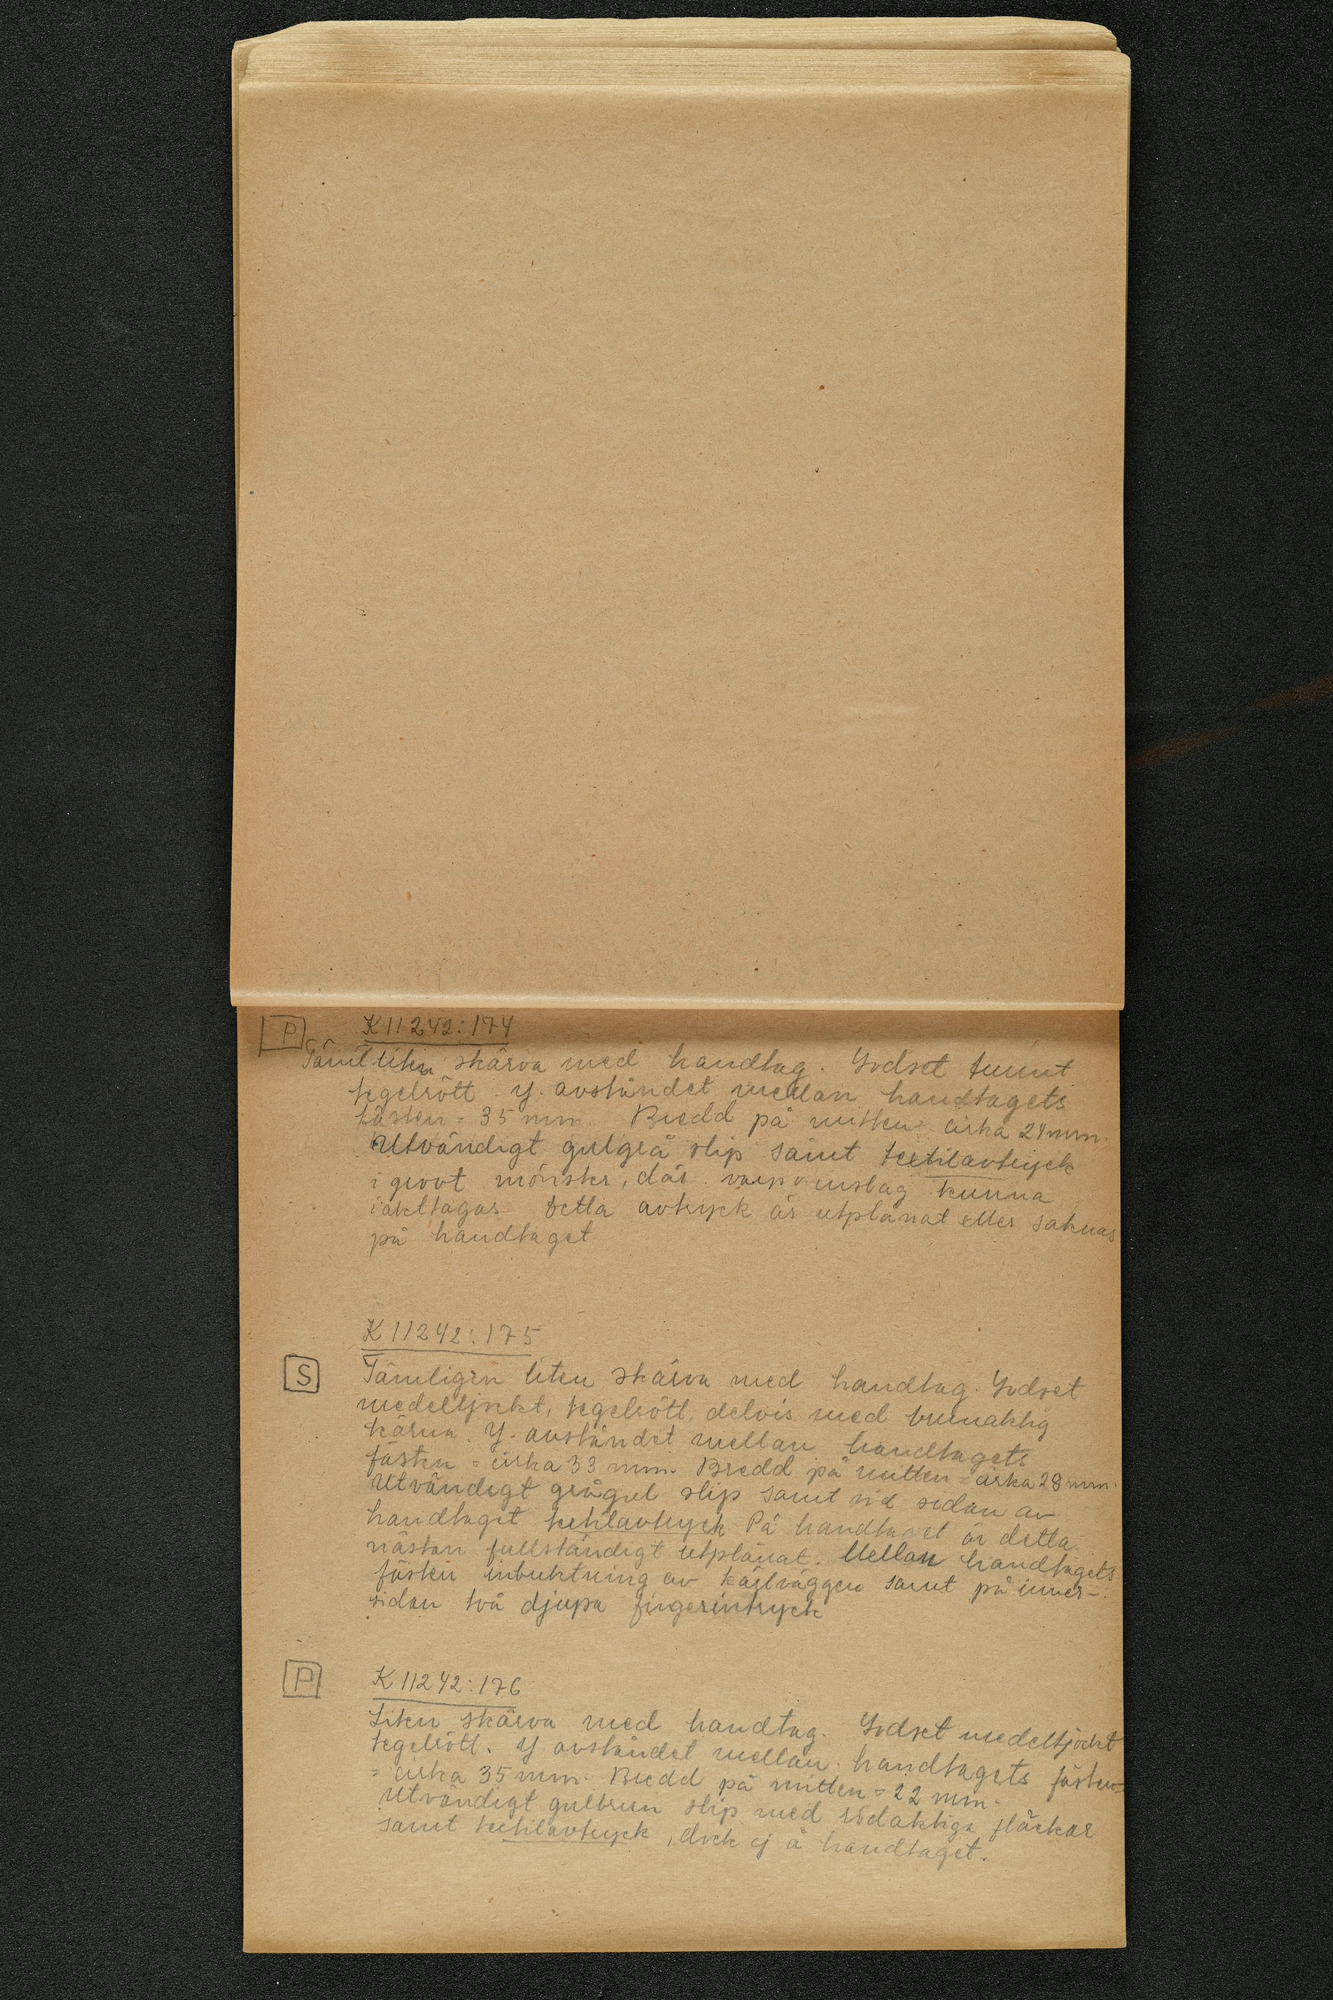 P K11242:174
Täml. liten skärva med handtag. Godset tunnt
tegelrött. Y. avståndet mellan handtagets
fästen = 35 mm. Bredd på mitten cirka 24 mm.
Utvändigt gulgrå slip samt textilavtryck
i grovt mönster, där varp o inslag kunna
iakttagas. Detta avtryck är utplånat eller saknas
på handtaget
K11242:175
S Tämligen liten skärva med handtag. Godset
medeltjockt, tegelrött, delvis med brunaktig
kärna. Y. avståndet mellan handtagets
fästen = cirka 33 mm. Bredd på mitten = cirka 28 mm.
Utvändigt grågul slip samt vid sidan av
handtaget textilavtryck På handtaget är detta
nästan fullständigt utplånat. Mellan handtagets
fästen inbuktning av kärlväggen samt på inner-
sidan två djupa fingerintryck
P K11242:176
Liten skärva med handtag. Godset medeltjockt
tegelrött. Y avståndet mellan handtagets fästen
= cirka 35 mm. Bredd på mitten = 22 mm.
Utvändigt gulbrun slip med rödaktiga fläckar
samt textilavtryck, dock ej å handtaget.